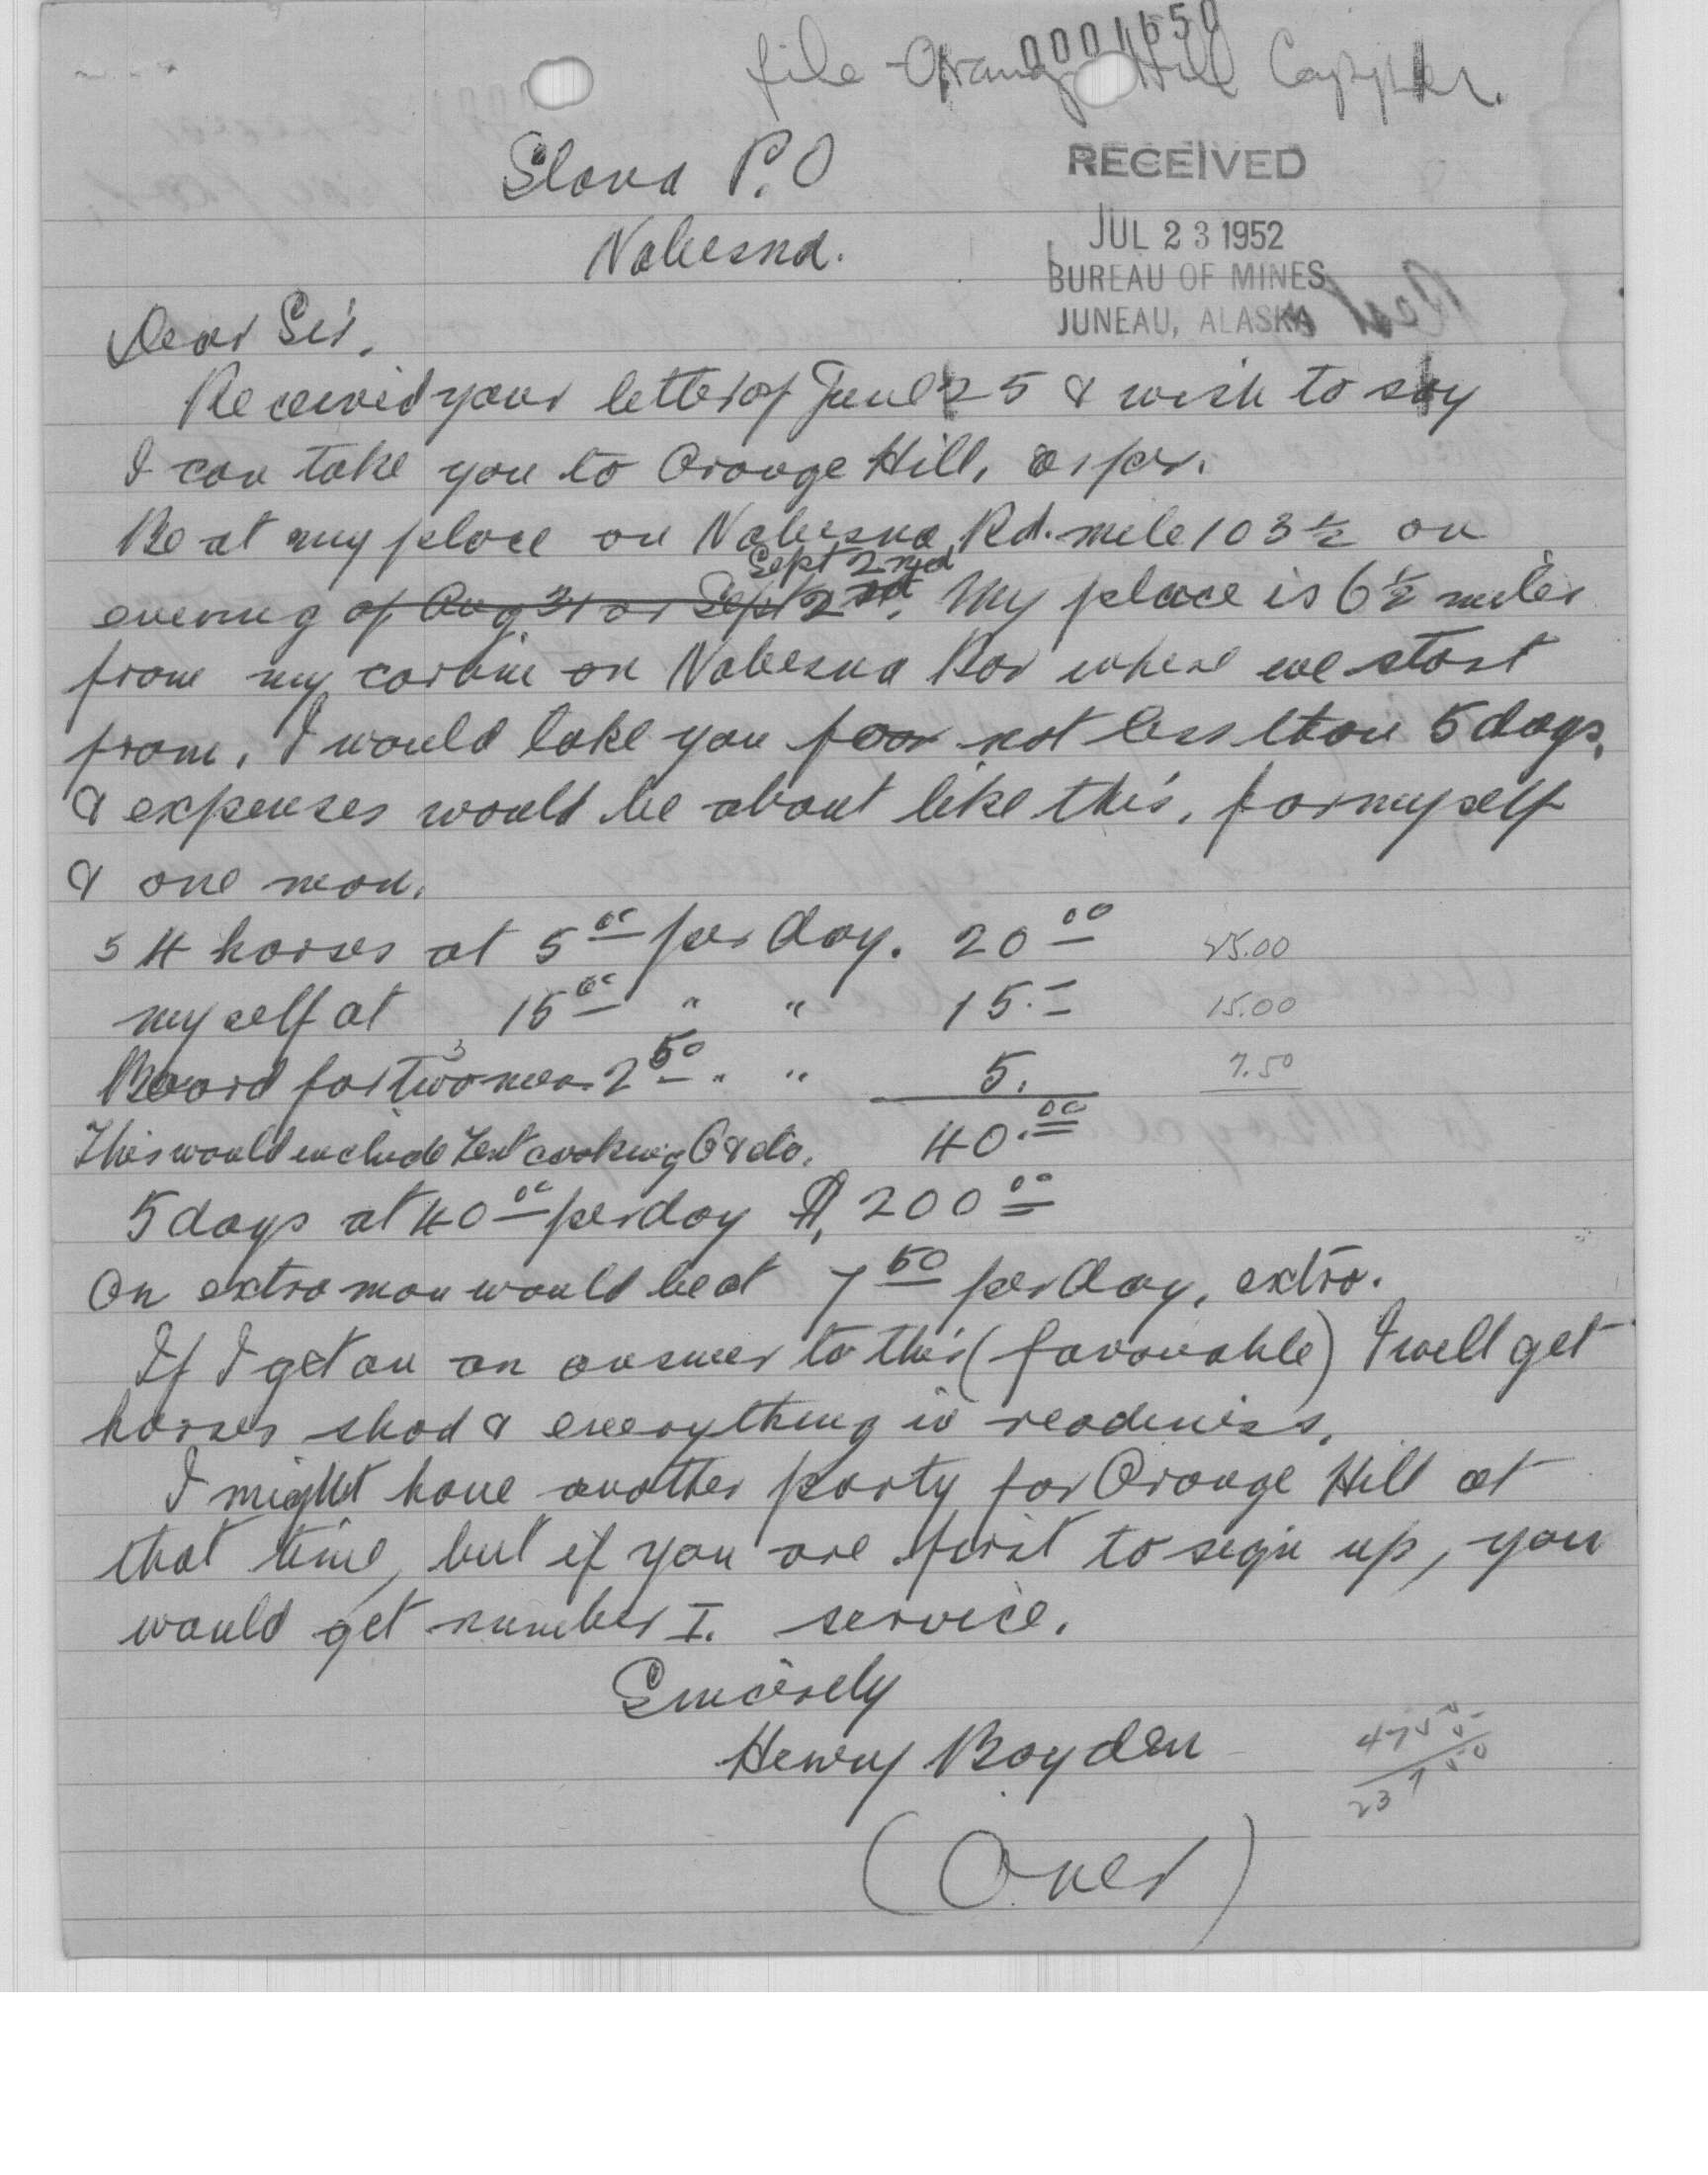 0001650
file - Orange Hill Copper.
Slana P.O
Nabesna.
RECEIVED
JUL 23 1952
BUREAU OF MINES
JUNEAU, ALASKA
Dear Sir,
Received your letter of June 25 & wish to say
I can take you to Orange Hill, as per.
Be at my place on Nabesna Rd. mile 103 ½ on
Sept 2nd
evening of Aug 31 or Sept 2nd. My place is 6½ miles
from my cabin on Nabesna Bar where we start
from. I would take you for not less than 5 days,
& expenses would be about like this, for myself
& one man.
5 4 horses at 5 00 per day. 20 00 25.00
myself at 15 00 " " 15.- 15.00
3
Board for two men 2 50 " " 5. 7.50
This would include tent cooking & etc. 40.00
5 days at 40 00 per day $ 200 00
An extra man would be at 7 50 per day, extra.
If I get an an answer to this (favourable) I will get
horses shod & everything in readiness.
I might have another party for Orange Hill at
that time, but if you are first to sign up, you
would get number I. service.
Sincerely
Henry Boyden
47 50
5
237 50
(Over)